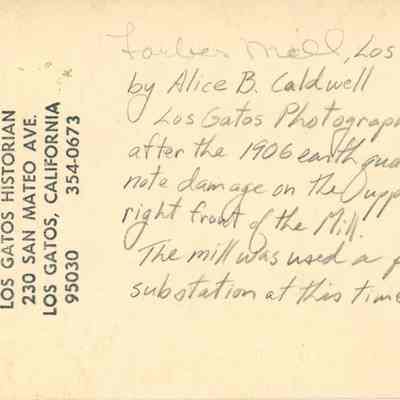 LOS GATOS HISTORIAN
230 SAN MATEO AVE.
LOS GATOS, CALIFORNIA
95030 354-0673
Forbes Mill, Los
by Alice B. Caldwell
Los Gatos Photograp
after the 1906 earthqua
note damage on the upp
right front of the Mill.
The mill was used a p
substation at this time